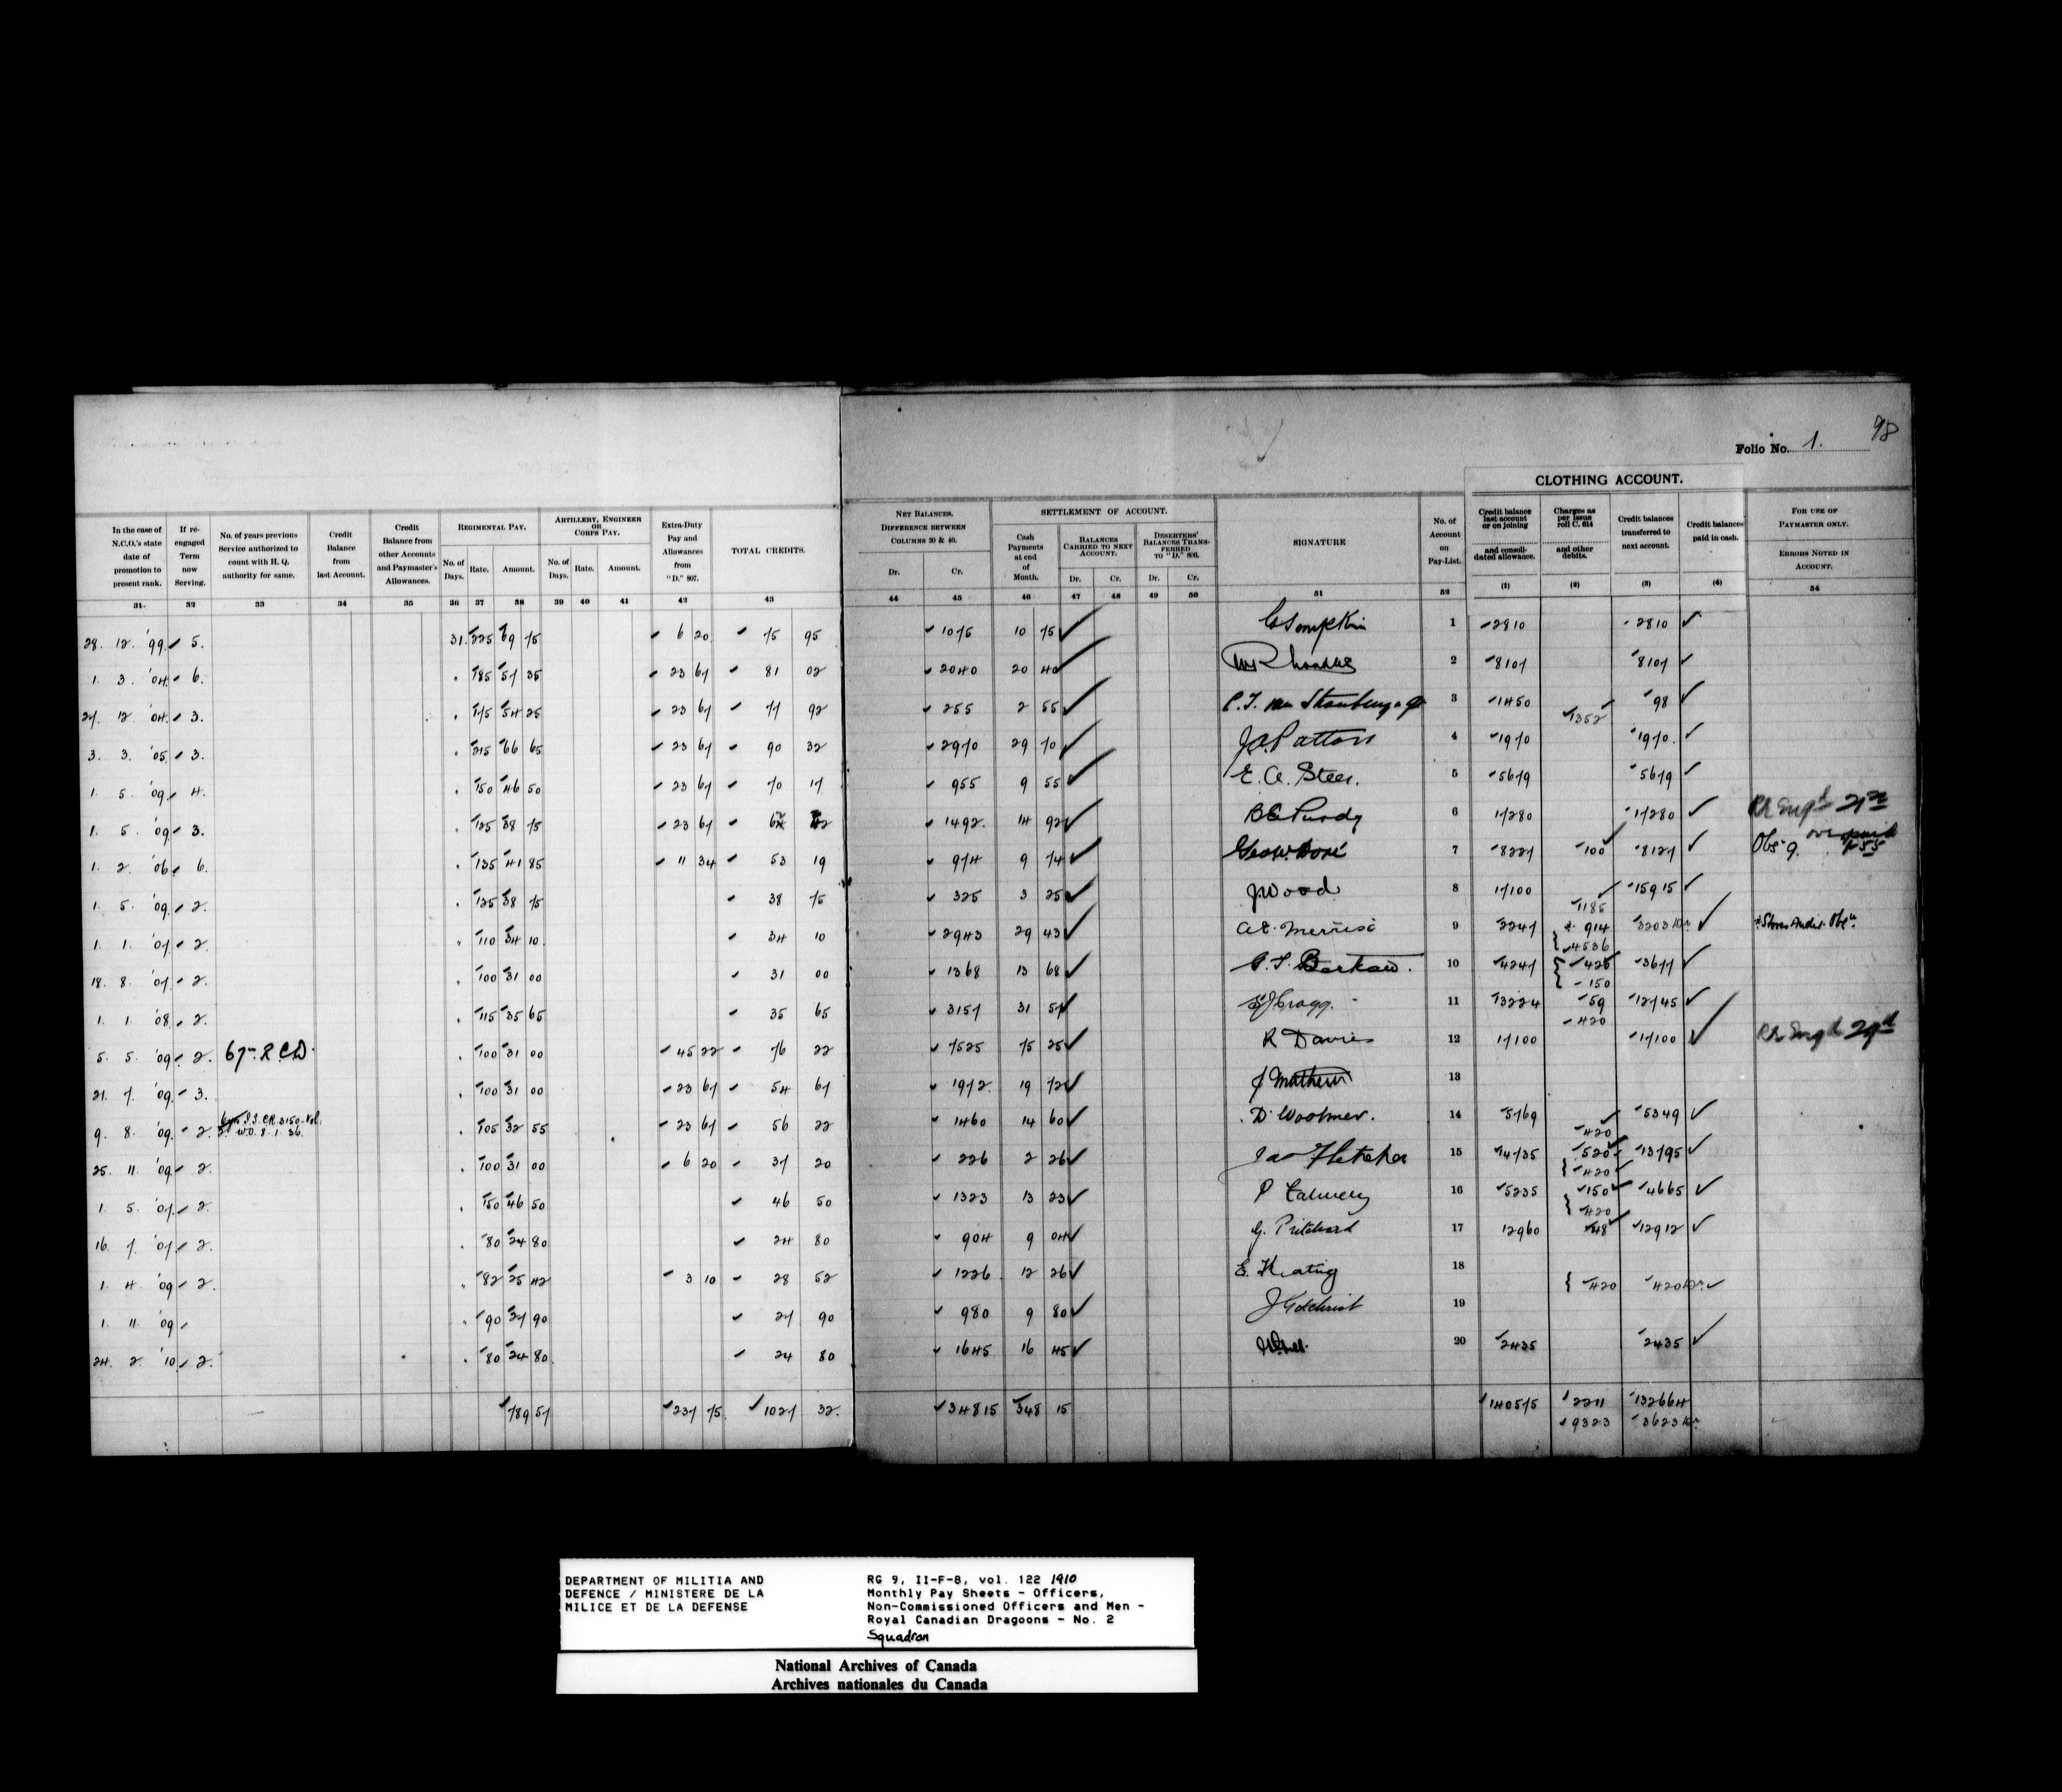 98
Folio No. 1.
CLOTHING ACCOUNT.
In the case of N.C.O.'s state date of promotion to present rank.
If re-engaged Term now Serving.
No. of years previous Service authorized to count with H. Q. authority for same.
Credit Balance from last Account.
Credit Balance from other Accounts and Paymaster's Allowances.
REGIMENTAL PAY.
No. of Days. Rate. Amount.
ARTILLERY, ENGINEER OR CORPS PAY.
No. of Days. Rate. Amount.
Extra-Duty Pay and Allowances from "D." 807.
TOTAL CREDITS.
NET BALANCES. DIFFERENCE BETWEEN COLUMNS 30 & 40.
Dr. Cr.
SETTLEMENT OF ACCOUNT.
Cash Payments at end of Month.
BALANCES CARRIED TO NEXT ACCOUNT.
Dr. Cr.
DESERTERS' BALANCES TRANSFERRED TO "D." 806.
Dr. Cr.
SIGNATURE
No. of Account on Pay-List.
Credit balance last account or on joining and consolidated allowance.
Charges as per issue roll C. 614 and other debits.
Credit balances transferred to next account.
Credit balances paid in cash.
FOR USE OF PAYMASTER ONLY.
ERRORS NOTED IN ACCOUNT.
31 32 33 34 35 36 37 38 39 40 41 42 43 44 45 46 47 48 49 50 51 52 (1) (2) (3) (4) 54
28. 12. '99. 5. 31. 225 69 75 6 20 75 95 1075 10 75 1 2810 2810
1. 3. '04. 6. 185 57 35 23 67 81 02 2040 20 40 2 8107 8107
27. 12. '04. 3. 175 54 25 23 67 77 92 255 2 55 3 1450 1352 98
3. 3. '05. 3. 215 66 65 23 67 90 32 2970 29 70 J.A. Patton 4 1970 1970
1. 5. '09. 4. 150 46 50 23 67 70 17 955 9 55 E. A. Steer. 5 5679 5679
1. 5. '09. 3. 125 38 75 23 67 62 42 1492 14 92 Purdy 6 17280 17280
1. 2. '06. 6. 135 41 85 11 34 53 19 974 9 74 7 8227 100 8127 Obs. 9. over paid
1. 5. '09. 2. 125 38 75 38 75 325 3 25 J Wood 8 17100 1185 15915
1. 1. '07. 2. 110 34 10 34 10 2943 29 43 9 2247 914 4536 3203 Dr.
18. 8. '07. 2. 100 31 00 31 00 1368 13 68 10 4247 420 150 3677
1. 1. '08. 2. 115 35 65 35 65 3157 31 57 Cragg. 11 13224 59 420 12745
5. 5. '09. 2. R.C.D. 100 31 00 45 22 76 22 7525 75 25 R Davies 12 17100 17100
21. 7. '09. 3. 100 31 00 23 67 54 67 1972 19 72 J Mathews 13
9. 8. '09. 2. 105 32 55 23 67 56 22 1460 14 60 D. Woolmer. 14 5769 420 5349
25. 11. '09. 2. 100 31 00 6 20 37 20 226 2 26 Jas Fletcher 15 14735 520 420 13795
1. 5. '07. 2. 150 46 50 46 50 1323 13 23 P 16 5235 150 420 4665
16. 7. '07. 2. 80 24 80 24 80 904 9 04 G. Pritchard 17 12960 48 12912
1. 4. '09. 2. 82 25 42 3 10 28 52 1226 12 26 E. Keating 18 420 420 Dr.
1. 11. '09. 90 27 90 27 90 980 9 80 J Gilchrist 19
24. 2. '10. 2. 80 24 80 24 80 1645 16 45 20 2435 2435
789 57 237 75 1027 32. 34815 348 15 140575 2211 132664
9323 3623 Dr.
DEPARTMENT OF MILITIA AND
DEFENCE / MINISTERE DE LA
MILICE ET DE LA DEFENSE
RG 9, II-F-8, vol. 122 1910
Monthly Pay Sheets - Officers,
Non-Commissioned Officers and Men -
Royal Canadian Dragoons - No. 2
Squadron
National Archives of Canada
Archives nationales du Canada